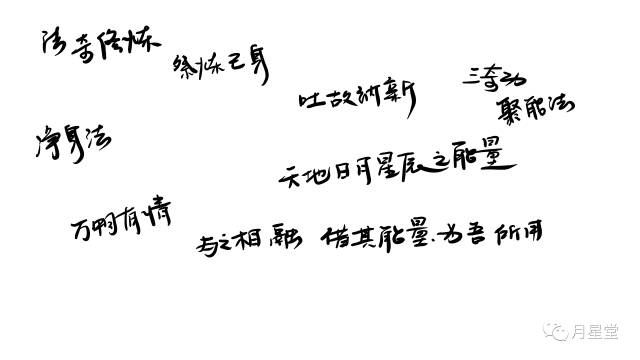 法奇修炼
祭炼己身
吐故纳新
三奇功
聚能法
净身法
天地日月星辰之能量
万物有情
与之相融 借其能量.为吾所用
月星堂